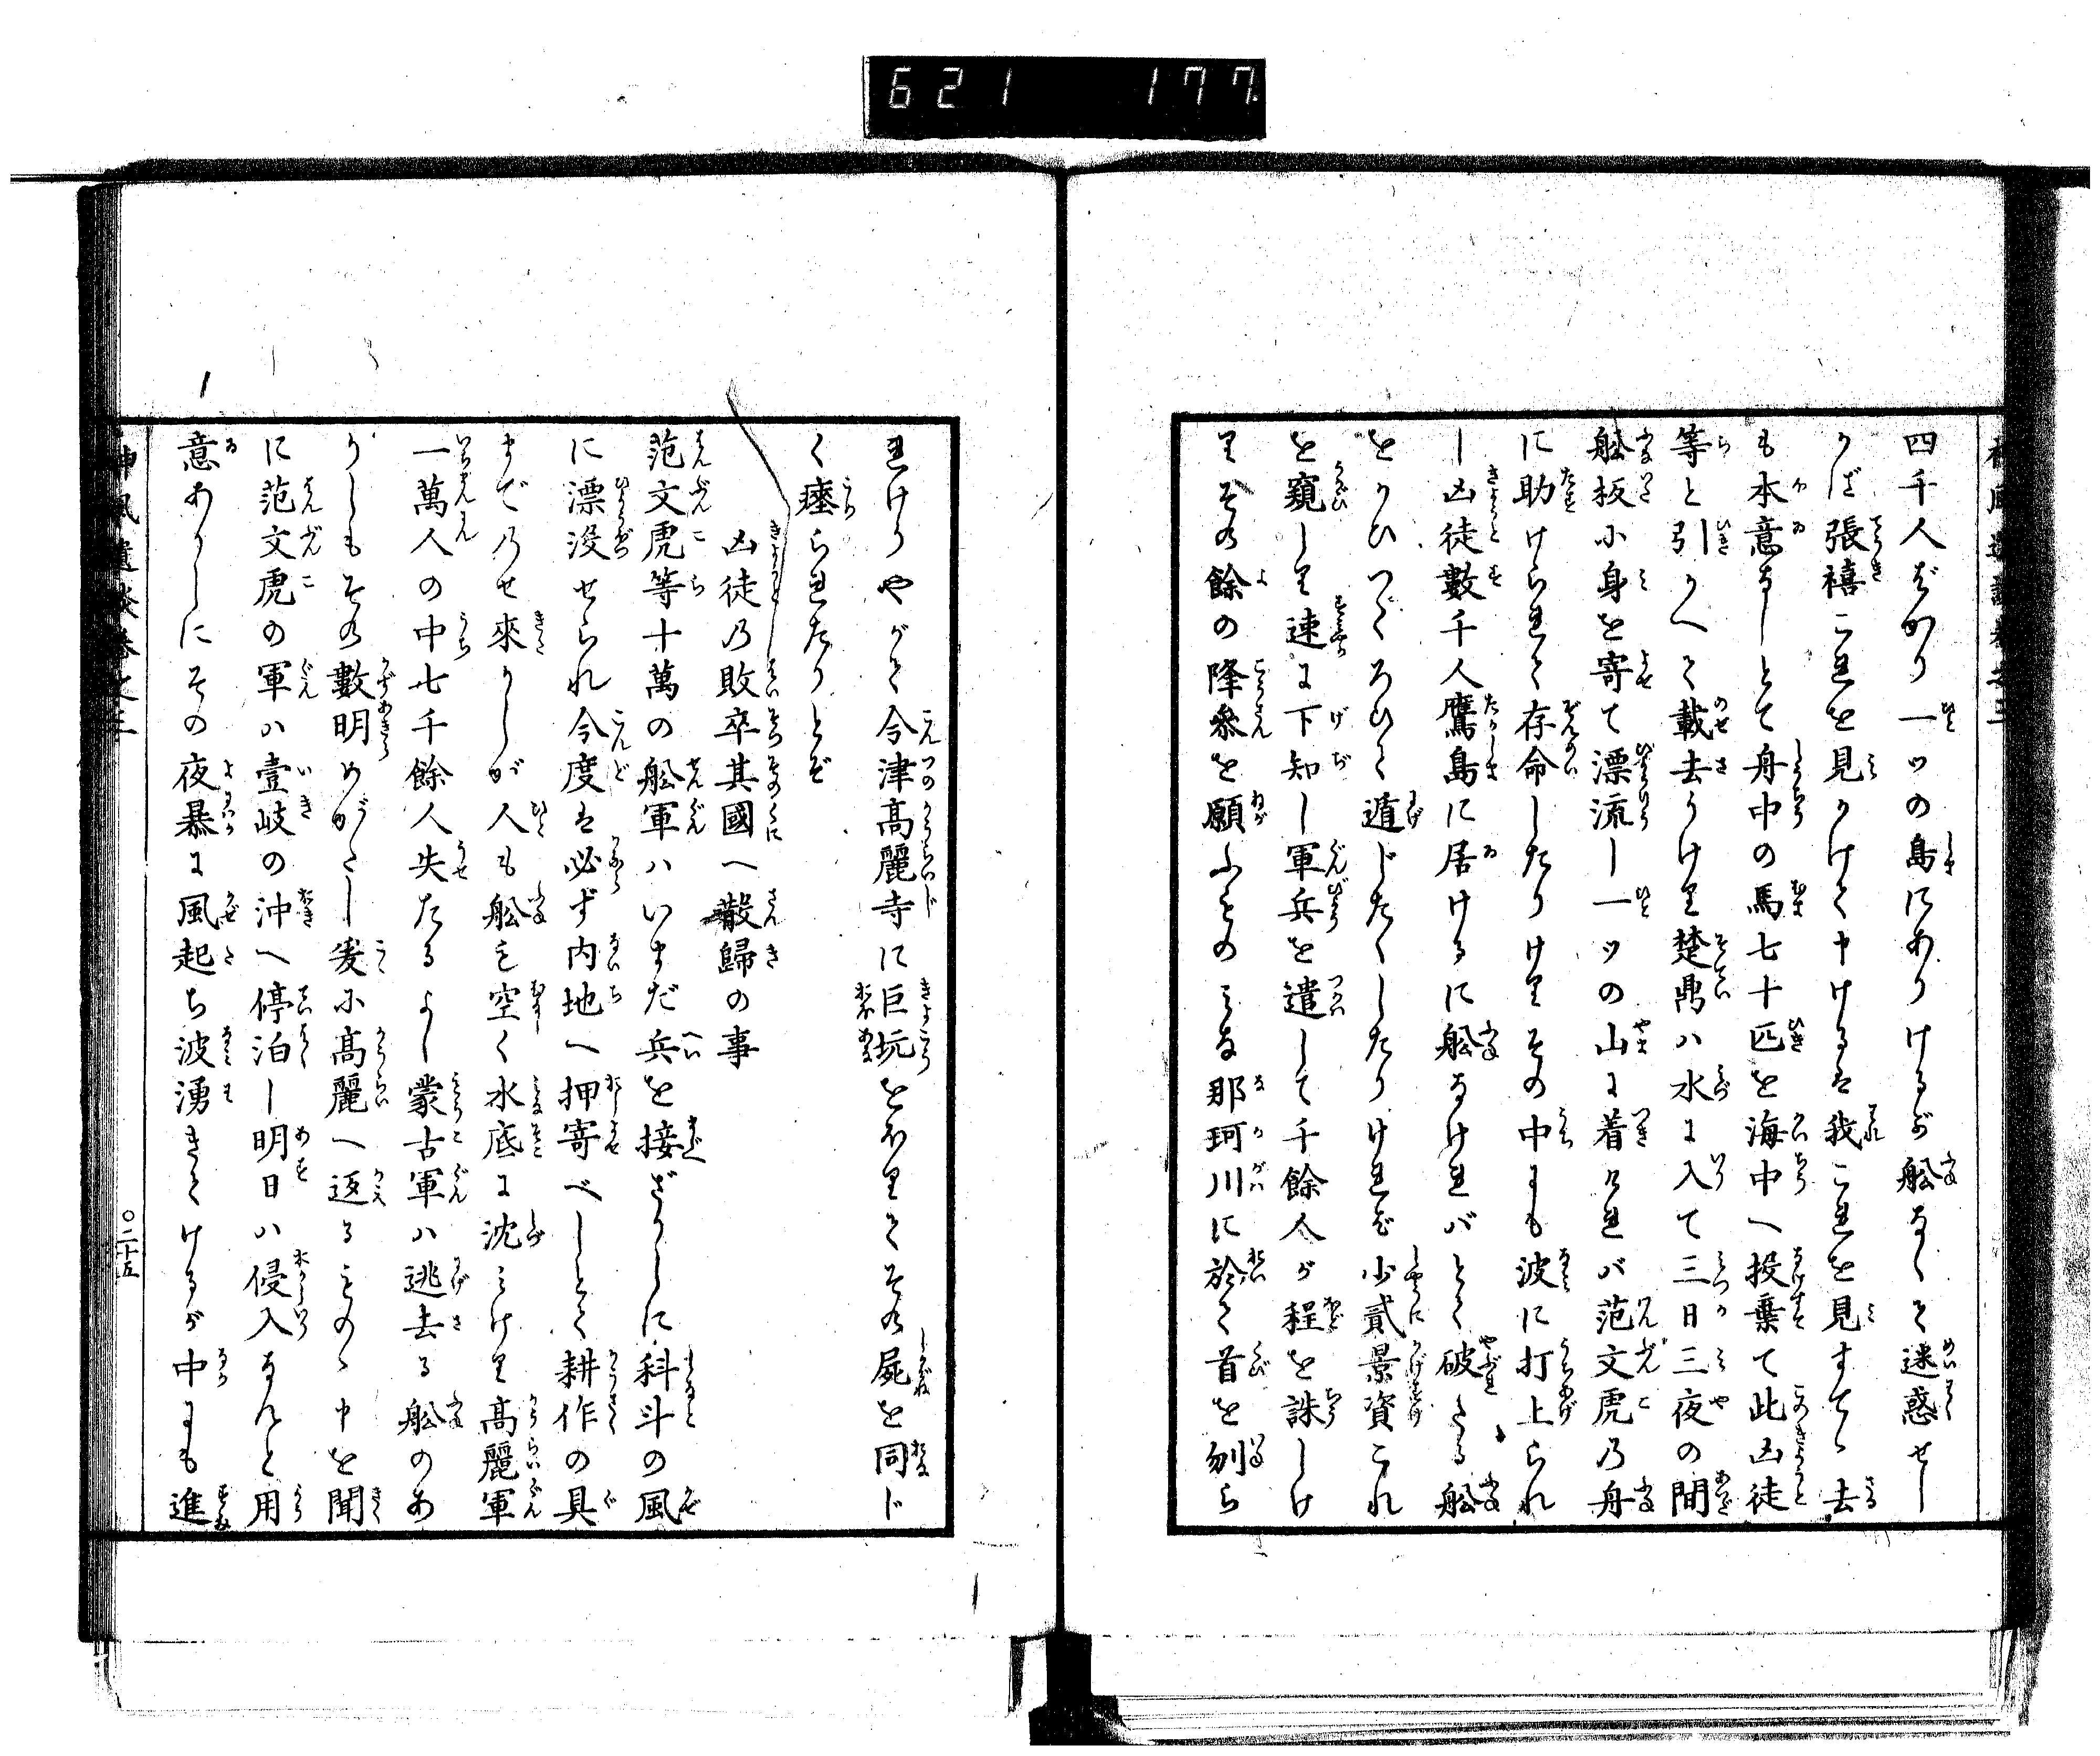 621 177
四千人ばかり一ツの島にありけるが舩なくて迷惑せし
かば張禧これを見かけて申けるは我これを見すてゝ去
も本意なしとて舟中の馬七十匹を海中へ投棄て此凶徒
等を引かへて載去りけり楚鼎ハ水に入て三日三夜の間
舩板に身を寄て漂流し一ツの山に着けれバ范文虎の舟
に助けられて存命したりけりその中にも波に打上られ
し凶徒數千人鷹島に居けるに舩なけれバとて破たる舩
をとりひつくろひて遁じたくしたりけれど少貳景資これ
を窺しり速に下知し軍兵を遣して千餘人が程を誅しけ
りその餘の降叅を願ふものみな那珂川に於て首を刎ら
れけりやがて今津髙麗寺に巨坑をほりてその屍を同じ
く瘞られたりとぞ
凶徒の敗卒其國へ散歸の事
范文虎等十萬の舩軍ハいまだ兵を接ざりしに科斗の風
に漂没せられ今度は必ず内地へ押寄べしとて耕作の具
までのせ來りしが人も舩も空く水底に沈みけり髙麗軍
一萬人の中七千餘人失たるよし蒙古軍ハ逃去る舩のあ
りしもその數明めがたし爰に髙麗へ返るものゝ申を聞
に范文虎の軍ハ壹岐の沖へ停泊し明日ハ侵入なんと用
意ありしにその夜暴に風起ち波湧きてけるが中にも進
神風遺談卷之三
〇二十五